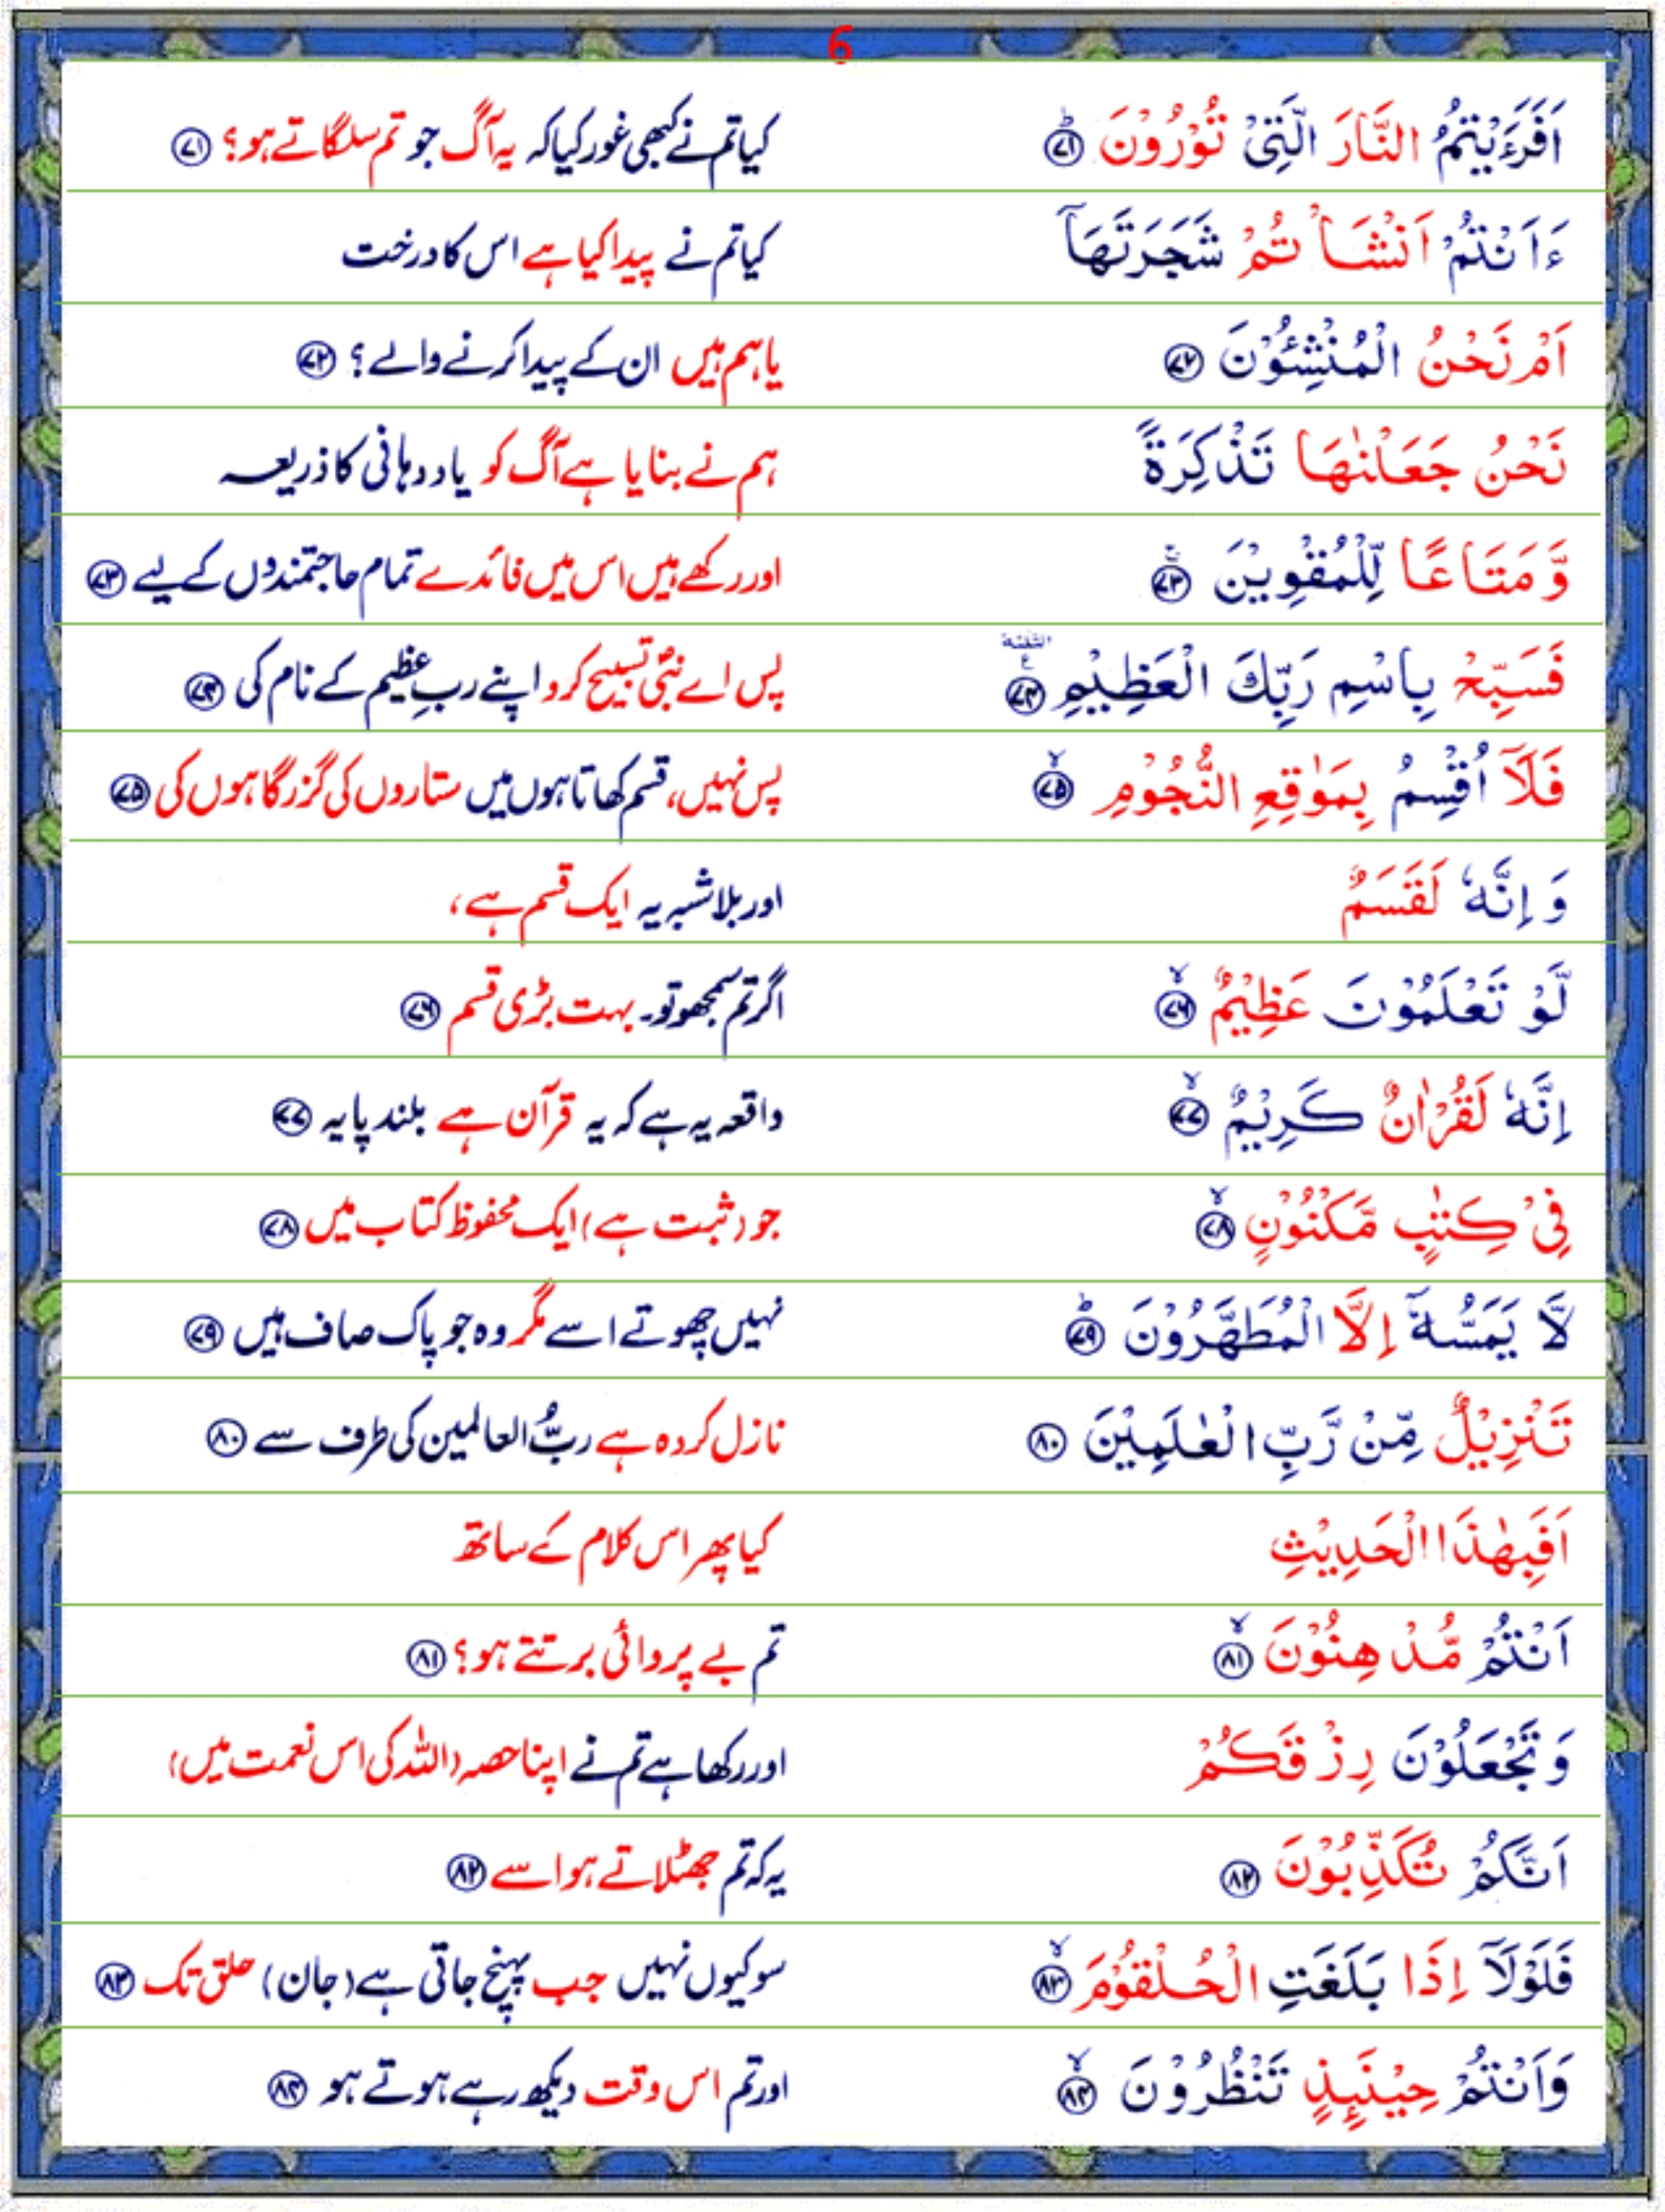 6
اَفَرَءَيْتُمُ النَّارَ الَّتِيْ تُوْرُوْنَ ﴿۷۱﴾ کیا تم نے کبھی غور کیا کہ یہ آگ جو تم سلگاتے ہو؟ ﴿۷۱﴾
ءَاَنْتُمْ اَنْشَاْتُمْ شَجَرَتَهَآ کیا تم نے پیدا کیا ہے اس کا درخت
اَمْ نَحْنُ الْمُنْشِـُٔوْنَ ﴿۷۲﴾ یا ہم ہیں ان کے پیدا کرنے والے؟ ﴿۷۲﴾
نَحْنُ جَعَلْنٰهَا تَذْكِرَةً ہم نے بنایا ہے آگ کو یاد دہانی کا ذریعہ
وَّمَتَاعًا لِّلْمُقْوِيْنَ ﴿۷۳﴾ اور رکھے ہیں اس میں فائدے تمام حاجتمندوں کے لیے ﴿۷۳﴾
فَسَبِّحْ بِاسْمِ رَبِّكَ الْعَظِيْمِ ﴿۷۴﴾ پس اے نبیؐ تسبیح کرو اپنے ربِ عظیم کے نام کی ﴿۷۴﴾
فَلَآ اُقْسِمُ بِمَوٰقِعِ النُّجُوْمِ ﴿۷۵﴾ پس نہیں، قسم کھاتا ہوں میں ستاروں کی گزرگاہوں کی ﴿۷۵﴾
وَ اِنَّهٗ لَقَسَمٌ اور بلاشبہ یہ ایک قسم ہے،
لَّوْ تَعْلَمُوْنَ عَظِيْمٌ ﴿۷۶﴾ اگر تم سمجھو تو۔ بہت بڑی قسم ﴿۷۶﴾
اِنَّهٗ لَقُرْاٰنٌ كَرِيْمٌ ﴿۷۷﴾ واقعہ یہ ہے کہ یہ قرآن ہے بلند پایہ ﴿۷۷﴾
فِيْ كِتٰبٍ مَّكْنُوْنٍ ﴿۷۸﴾ جو (ثبت ہے) ایک محفوظ کتاب میں ﴿۷۸﴾
لَّا يَمَسُّهٗٓ اِلَّا الْمُطَهَّرُوْنَ ﴿۷۹﴾ نہیں چھوتے اسے مگر وہ جو پاک صاف ہیں ﴿۷۹﴾
تَنْزِيْلٌ مِّنْ رَّبِّ الْعٰلَمِيْنَ ﴿۸۰﴾ نازل کردہ ہے ربُّ العالمین کی طرف سے ﴿۸۰﴾
اَفَبِهٰذَا الْحَدِيْثِ کیا پھر اس کلام کے ساتھ
اَنْتُمْ مُّدْهِنُوْنَ ﴿۸۱﴾ تم بے پروائی برتتے ہو؟ ﴿۸۱﴾
وَ تَجْعَلُوْنَ رِزْقَكُمْ اور رکھا ہے تم نے اپنا حصہ (اللہ کی اس نعمت میں)
اَنَّكُمْ تُكَذِّبُوْنَ ﴿۸۲﴾ یہ کہ تم جھٹلاتے ہو اسے ﴿۸۲﴾
فَلَوْلَآ اِذَا بَلَغَتِ الْحُلْقُوْمَ ﴿۸۳﴾ سو کیوں نہیں جب پہنچ جاتی ہے (جان) حلق تک ﴿۸۳﴾
وَاَنْتُمْ حِيْنَىِٕذٍ تَنْظُرُوْنَ ﴿۸۴﴾ اور تم اس وقت دیکھ رہے ہوتے ہو ﴿۸۴﴾